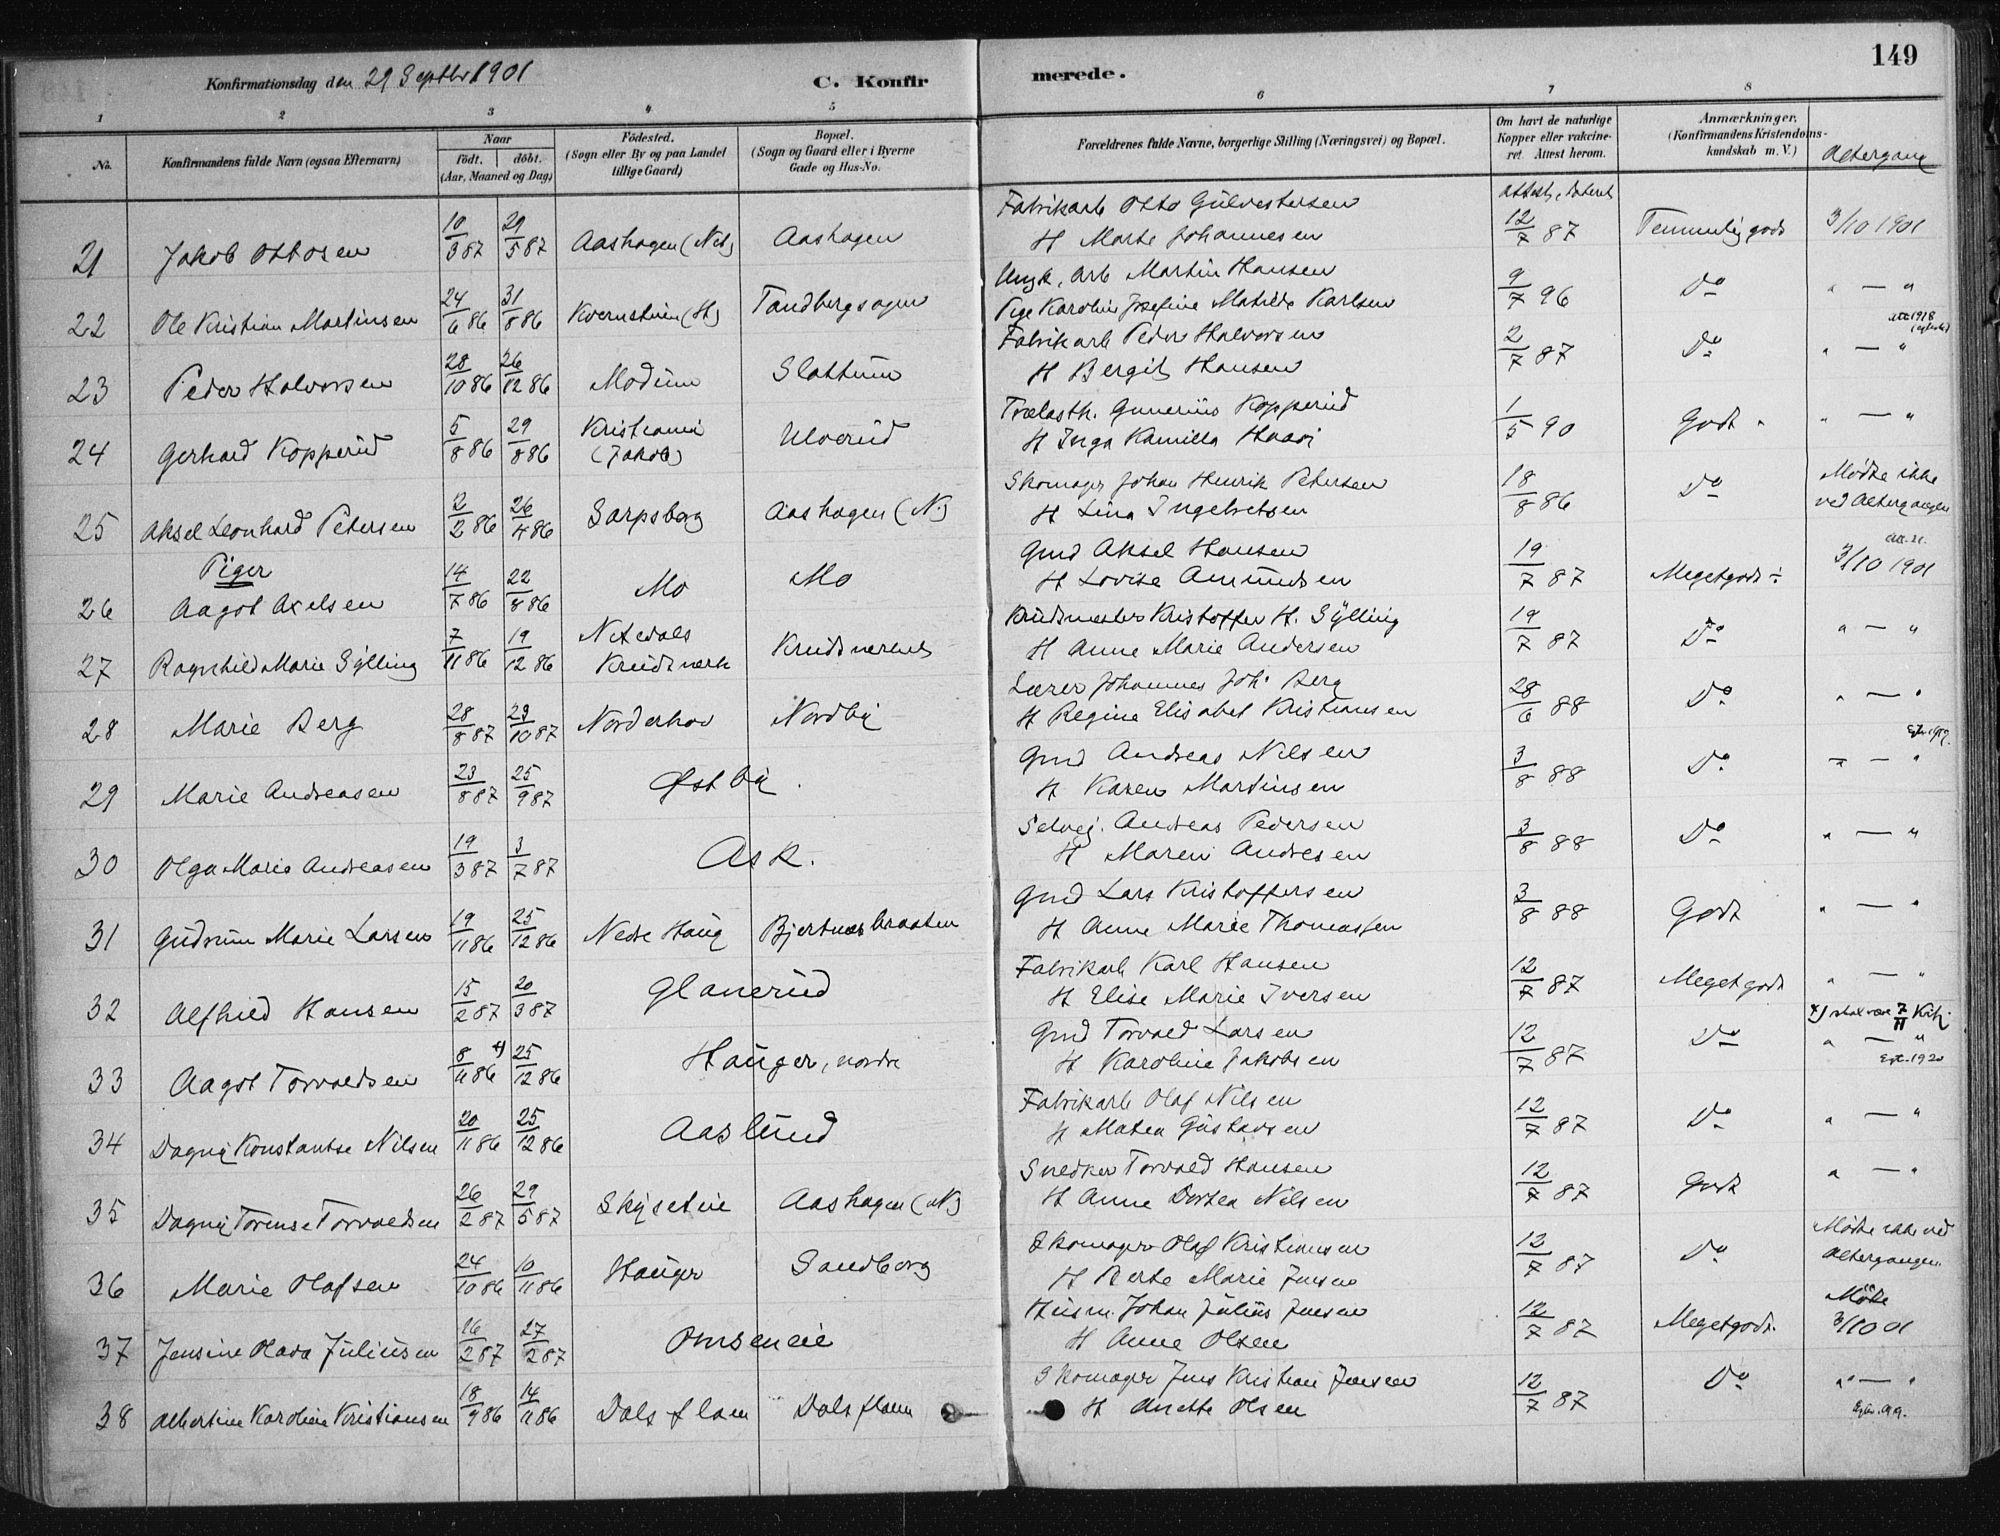 149
Konfirmationsdag den 29 Septbr 1901
C. Konfirmerede.
1 2 3 4 5 6 7 8
No.
Konfirmandens fulde Navn (ogsaa Efternavn)
Naar
født. døbt.
(Aar, Maaned og Dag)
Fødested.
(Sogn eller By og paa Landet
tillige Gaard)
Bopæl.
(Sogn og Gaard eller i Byerne
Gade og Hus-No.
Forældrenes fulde Navne, borgerlige Stilling (Næringsvei) og Bopæl.
Om havt de naturlige
Kopper eller vakcine-
ret. Attest herom.
Anmærkninger.
(Konfirmandens Kristendoms-
kundskab m. V.)
Altergang
Attest, dateret
Fabrikarb Otto Gulvestersen
21 Jakob Ottosen 10/3 87 29/5 87 Aashagen (Nit) Aashagen H Marte Johannesen 12/7 87 Temmelig godt 3/10 1901
Ungk. Arb Martin Hansen
22 Ole Kristian Martinsen 24/6 86 31/8 86 Kvernstuen (H) Tandbergsagen Pige Karolin Josefine Matilde Karlsen 9/7 96 Do " — "
Att 1918
Fabrikarb Peder Halvorsen
23 Peder Halvorsen 28/10 86 26/12 86 Modum Slattum H Bergit Hansen 2/7 87 Do " — "
Trælasth. Gunerius Kopperud
24 Gerhard Kopperud 5/8 86 29/8 86 Kristiania (Jakob) Ulverud H Inga Kamilla Haavi 1/5 90 Godt " — "
Skomager Johan Henrik Petersen
25 Aksel Leonhard Petersen 2/2 86 26/4 86 Sarpsborg Aashagen (N.) H Lina Ingebretsen 18/8 86 Do Mødte ikke ved Altergangen
Piger
Gmd Aksel Hansen
26 Aagot Axelsen 14/7 86 22/8 86 Mo Mo H Lovise Amundsen 19/7 87 Megetgodt ÷ 3/10 1901
Krudtmester Kristoffer H. Sylling
27 Ragnhild Marie Sylling 7/11 86 19/12 86 Nitedals Krudtverk Krudtverket H Anne Marie Andersen 19/7 87 Do " — "
Lærer Johannes Joh. Berg
28 Marie Berg 28/8 87 23/10 87 Norderhov Nordby H Regine Elisabet Kristiansen 28/6 88 Do " — "
Gmd Andreas Nilsen
29 Marie Andreasen 23/8 87 25/9 87 Østby. H Karen Martinsen 3/8 88 Do " — "
Selvej. Andreas Pedersen
30 Olga Marie Andreasen 19/3 87 3/7 87 Ask. H Maren Andresen 3/8 88 Do " — "
Gmd Lars Kristoffersen
31 Gudrun Marie Larsen 19/11 86 25/12 86 Nedre Haug Bjertnesbraaten H Anne Marie Thomassen 3/8 88 Godt " — "
Fabrikarb Karl Hansen
32 Alfhild Hansen 15/2 87 20/3 87 Glanerud H Elise Marie Iversen 12/7 87 Megetgodt " — "
x) skal være 7/11
Gmd Torvald Larsen
33 Aagot Torvaldsen 8/11 86 x) 25/12 86 Hauger, nordre H Karoline Jakobsen 12/7 87 Do " — "
Egte. 1920
Fabrikarb Olaf Nilsen
34 Dagny Konstantse Nilsen 20/11 86 25/12 86 Aaslund H Matea Gustavsen 12/7 87 Do " — "
Snedker Torvald Hansen
35 Dagny Torense Torvaldsen 26/2 87 29/5 87 Skyseteie Aashagen (N) H Anne Dortea Nilsen 12/7 87 Godt " — "
Skomager Olaf Kristiansen
36 Marie Olafsen 24/10 86 10/11 86 Hauger Sandborg H Berte Marie Jensen 12/7 87 Do Mødte ikke ved Altergangen
Husm. Johan Julius Jensen
37 Jensine Olava Juliusen 16/2 87 27/2 87 Ornseneie H Anne Olsen 12/7 87 Megetgodt. Mødte 3/10 01
Skomager Jens Kristian Jensen
38 Albertine Karoline Kristiansen 18/9 86 14/11 86 Dalsflaen Dalsflaen H Anette Olsen 12/7 87 Do " — "